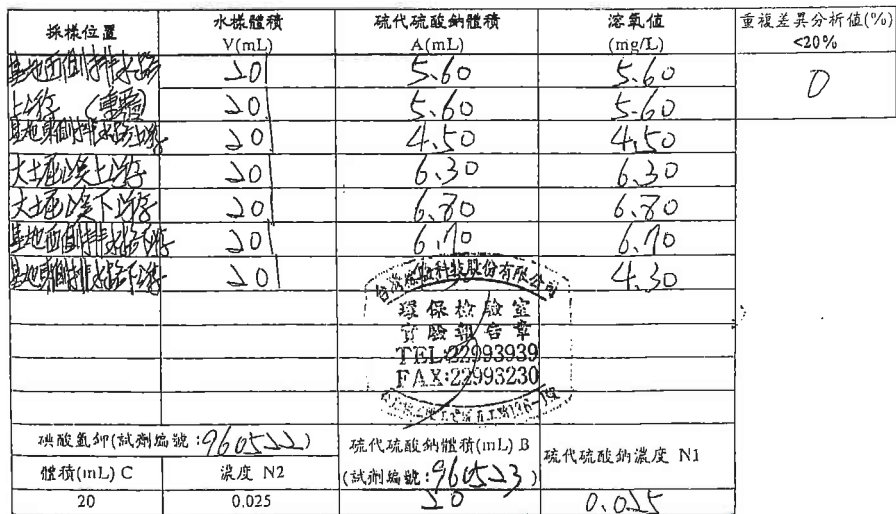 採樣位置 水樣體積 V(mL) 硫代硫酸鈉體積 A(mL) 溶氧值 (mg/L) 重複差異分析值(%) <20%
基地西側排水路 201 5.60 5.60 0
上游 (重複) 201 5.60 5.60
基地東側排水路上游 201 4.50 4.50
大土砥溪上游 201 6.30 6.30
大土砥溪下游 201 6.80 6.80
基地西側排水路下游 201 6.70 6.70
基地東側排水路下游 201 4.30
台灣 科技股份有限公司
環保檢驗室
實驗報告章
TEL:22993939
FAX:22993230
碘酸氫鉀(試劑編號:960522) 硫代硫酸鈉體積(mL) B (試劑編號:960523) 硫代硫酸鈉濃度 N1
體積(mL) C 濃度 N2
20 0.025 20 0.025